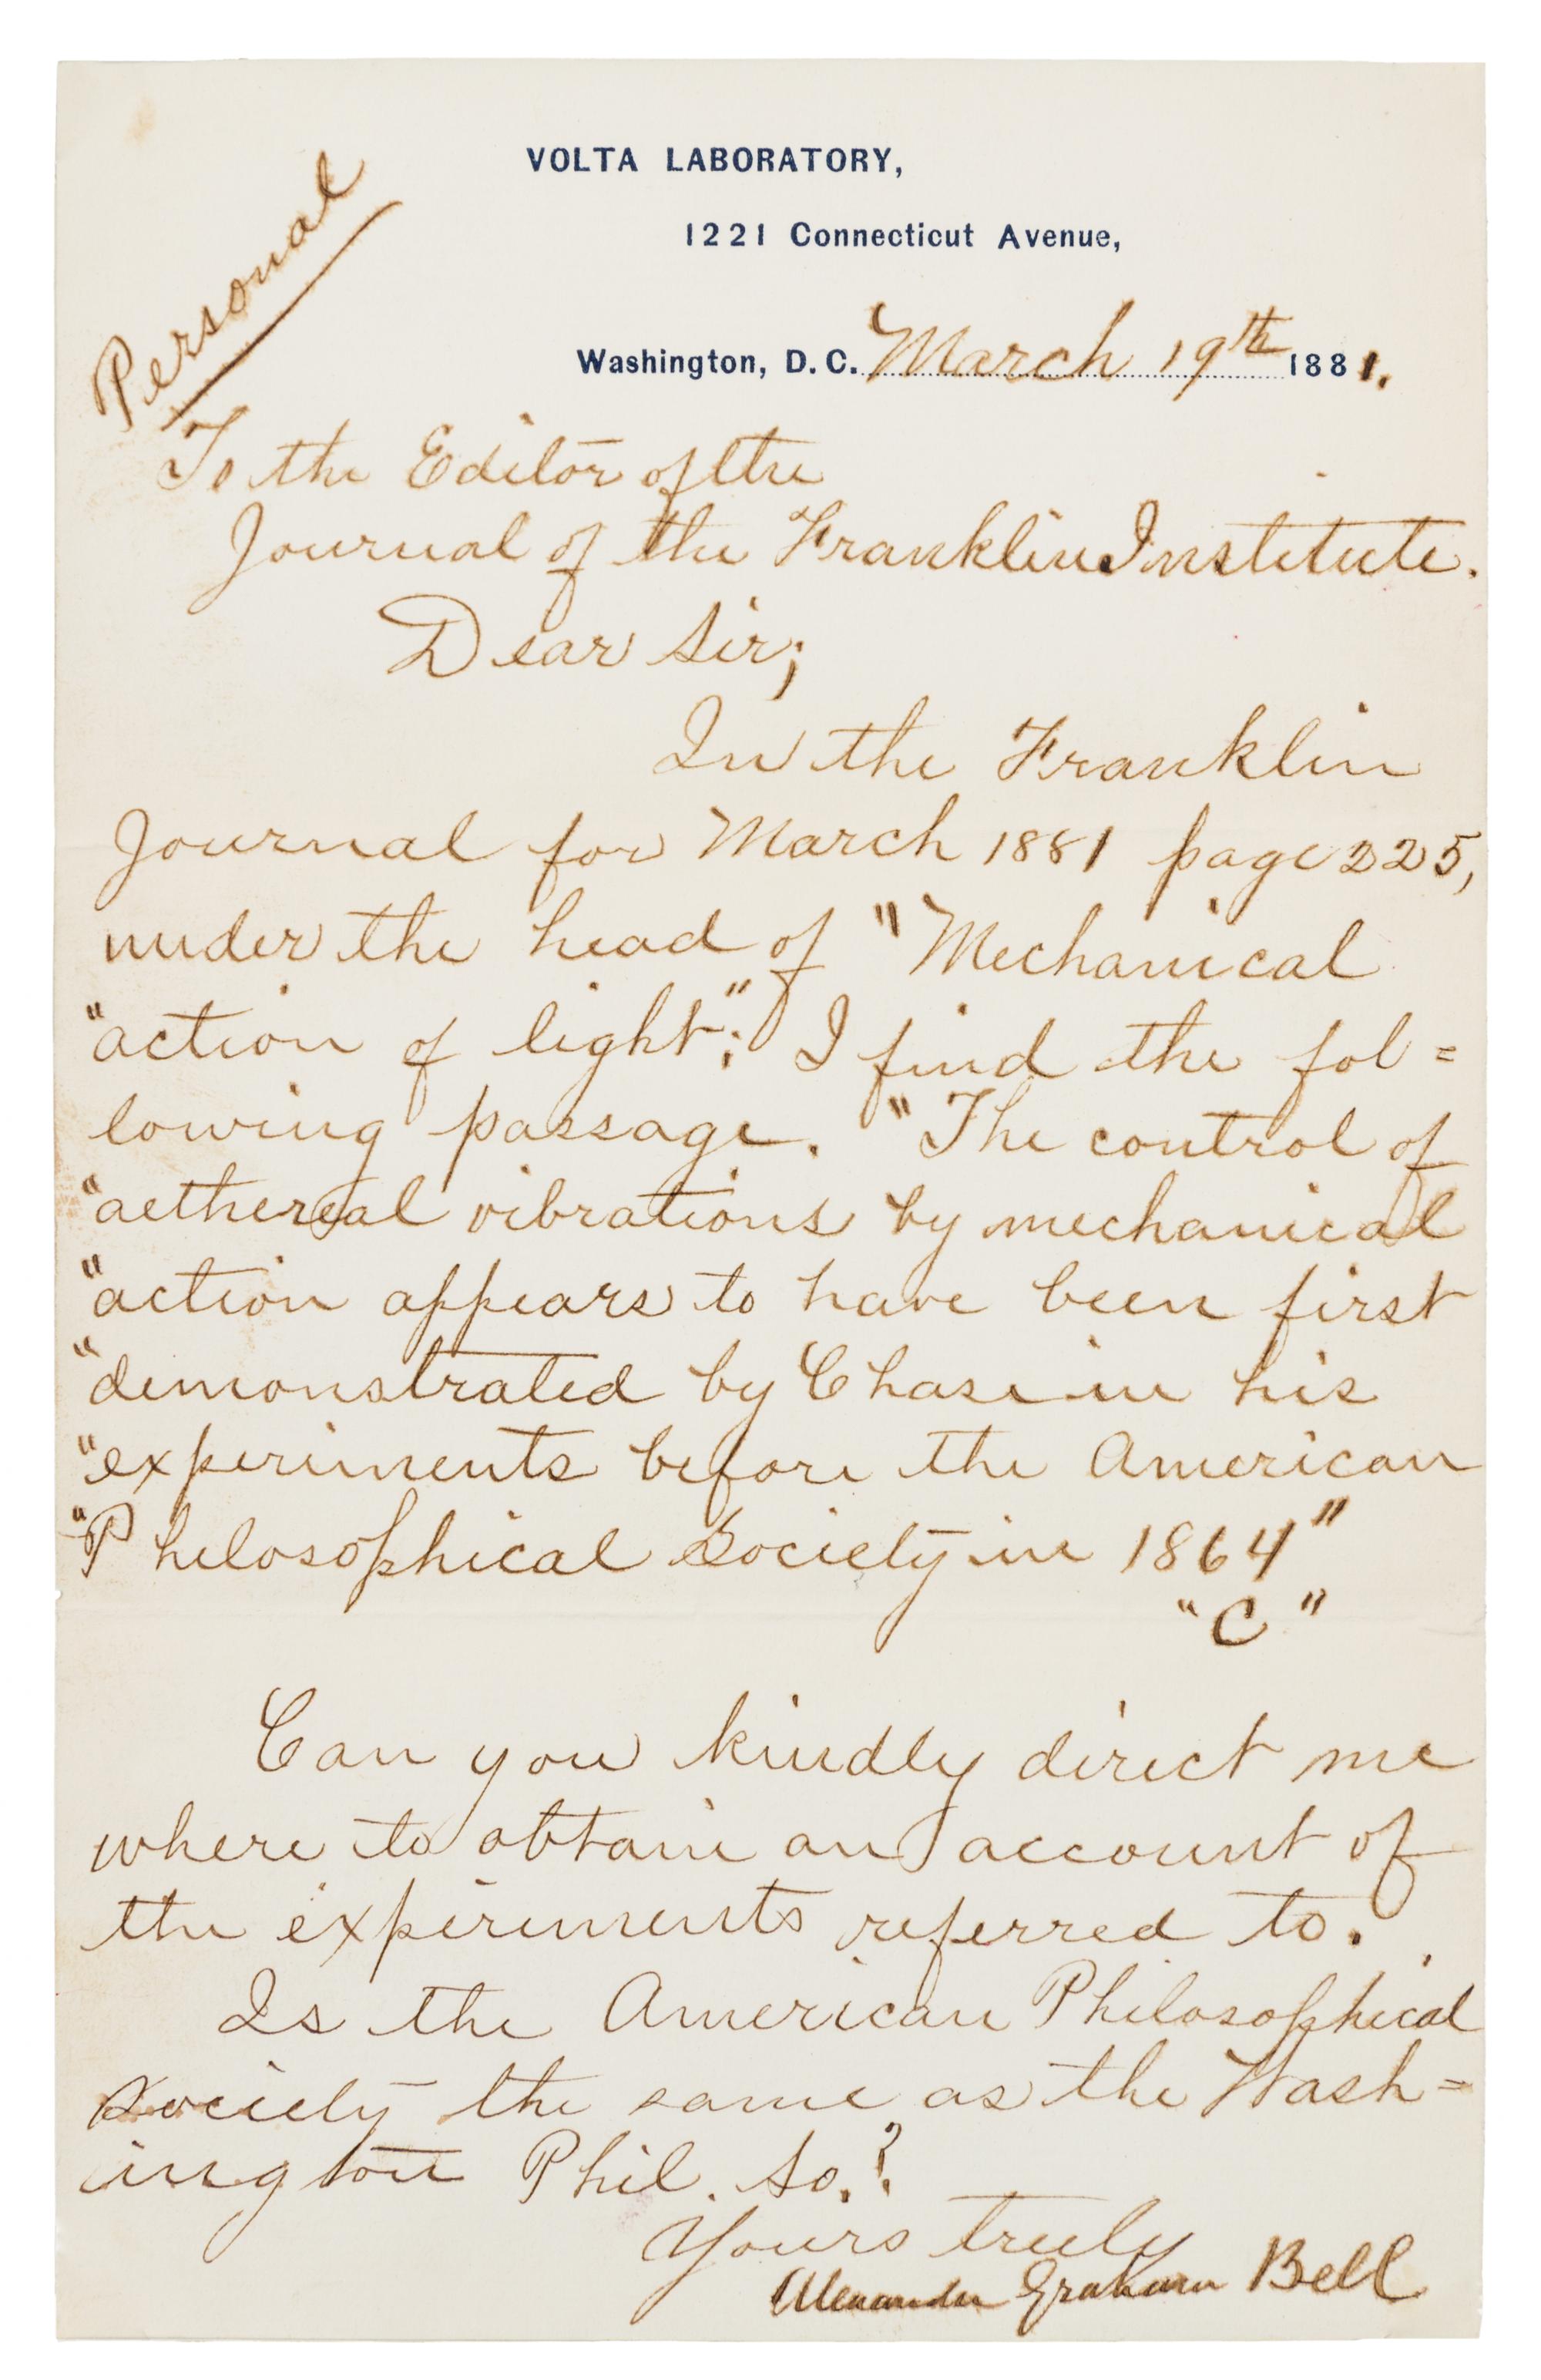 VOLTA LABORATORY,
1221 Connecticut Avenue,
Personal
Washington, D.C. March 19th 1881.
To the Editor of the
Journal of the Franklin Institute.
Dear Sir;
In the Franklin
Journal for March 1881 page 225,
under the head of "Mechanical
"action of light"; I find the fol=
lowing passage. "The control of
"aethereal vibrations by mechanical
"action appears to have been first
"demonstrated by Chase in his
"experiments before the American
"Philosophical Society in 1864"
"C"
Can you kindly direct me
where to obtain an account of
the experiments referred to.
Is the American Philosophical
Society the same as the Wash=
ington Phil. So.?
Yours truly
Alexander Graham Bell